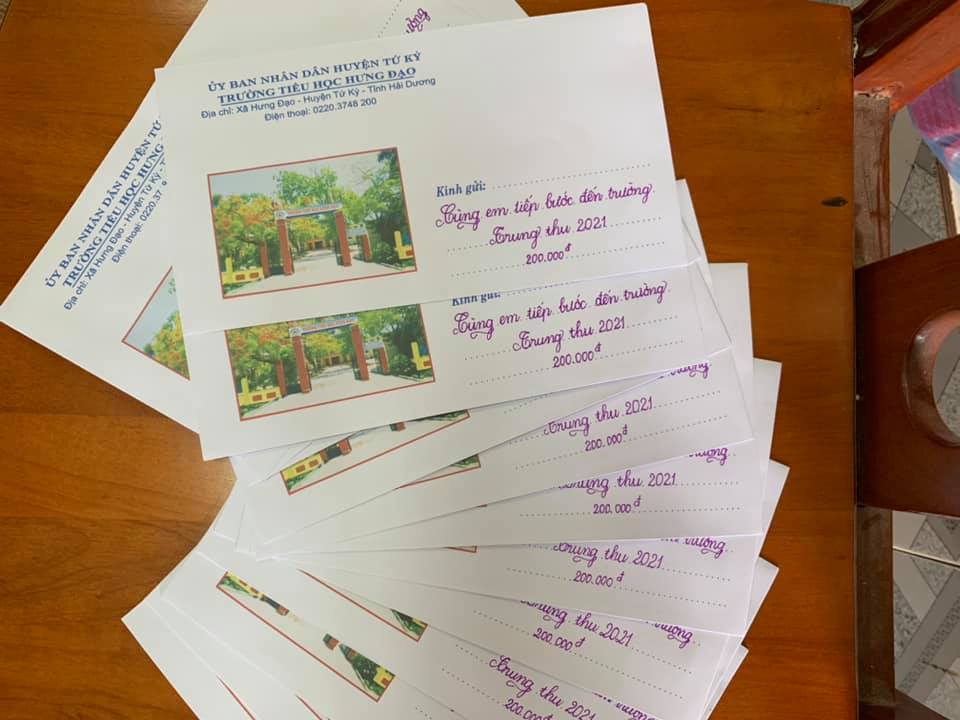 ường
ỦY BAN NHÂN DÂN HUYỆN TỨ KỲ
TRƯỜNG TIỂU HỌC HƯNG ĐẠO
Địa chỉ: Xã Hưng Đạo - Huyện Tứ Kỳ - Tỉnh Hải Dương
Điện thoại: 0220.3748 200
Kính gửi:
Cùng em tiếp bước đến trường
Trung thu 2021
200.000đ
ỦY BAN NHÂN DÂN HUYỆN TỨ
TRƯỜNG TIỂU HỌC HƯNG ĐẠ
Địa chỉ: Xã Hưng Đạo - Huyện Tứ Kỳ - T
Điện thoại: 0220.37
Kính gửi:
Cùng em tiếp bước đến trường
Trung thu 2021
200.000đ
trường
Trung thu 2021
200.000đ
ường
Trung thu 2021
200.000đ
trường
Trung thu 2021
200.000đ
trường
Trung thu 2021
200.000đ
Trung thu 2021
200.000